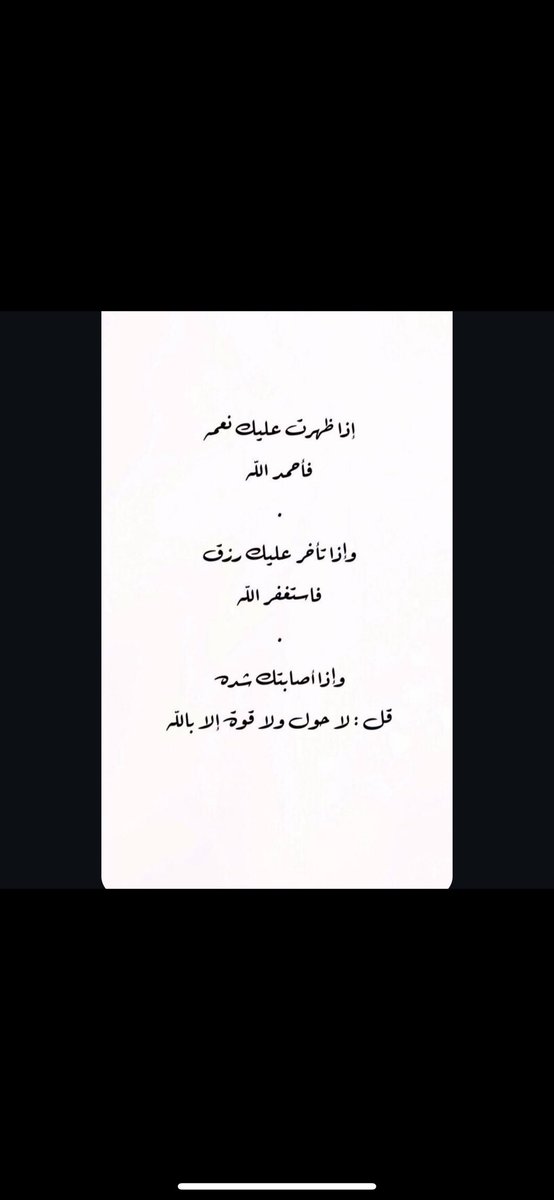 إذا ظهرت عليك نعمه
فأحمد الله
.
وإذا تأخر عليك رزق
فاستغفر الله
.
وإذا أصابتك شده
قل : لا حول ولا قوة إلا بالله